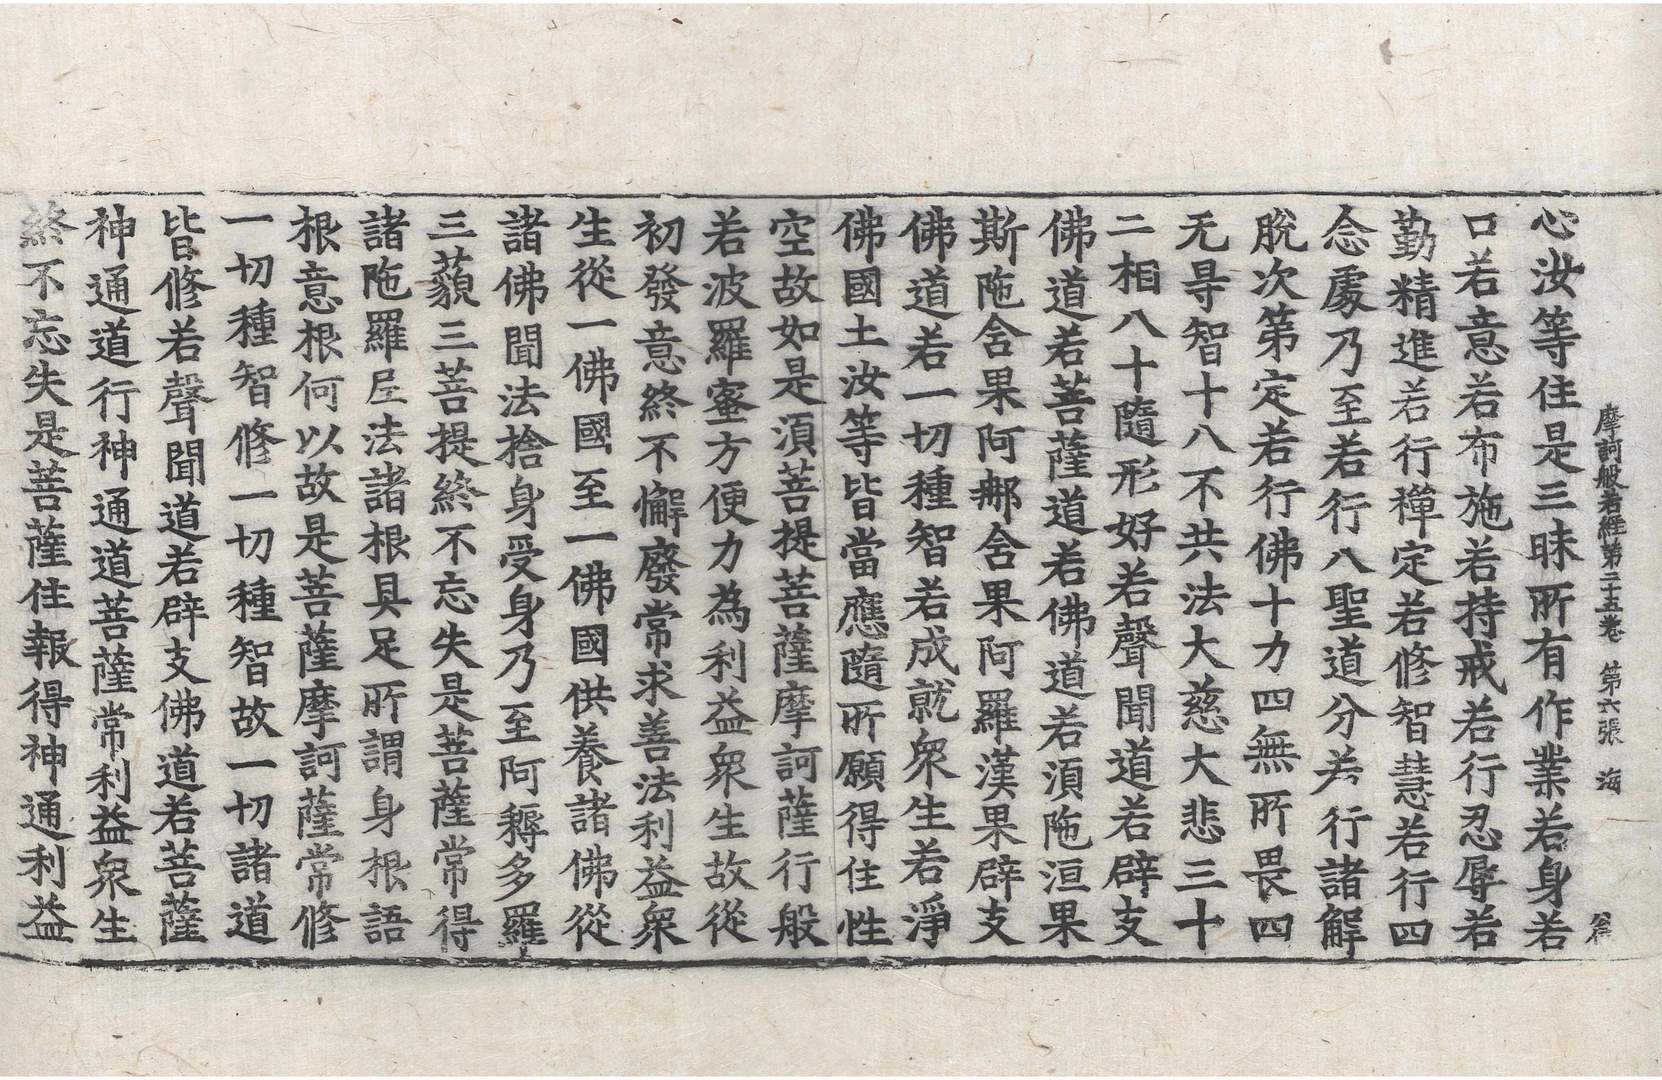 摩訶般若經第二十五卷 第六張 海
心汝等住是三昧所有作業若身若
口若意若布施若持戒若行忍辱若
勤精進若行禪定若修智慧若行四
念處乃至若行八聖道分若行諸解
脫次第定若行佛十力四無所畏四
无㝵智十八不共法大慈大悲三十
二相八十隨形好若聲聞道若辟支
佛道若菩薩道若佛道若湏陁洹果
斯陁含果阿那含果阿羅漢果辟支
佛道若一切種智若成就衆生若淨
佛國土汝等皆當應隨所願得住性
空故如是湏菩提菩薩摩訶薩行般
若波羅蜜方便力為利益衆生故從
初發意終不懈廢常求善法利益衆
生從一佛國至一佛國供養諸佛從
諸佛聞法捨身受身乃至阿耨多羅
三藐三菩提終不忘失是菩薩常得
諸陁羅尼法諸根具足所謂身根語
根意根何以故是菩薩摩訶薩常修
一切種智修一切種智故一切諸道
皆修若聲聞道若辟支佛道若菩薩
神通道行神通道菩薩常利益衆生
終不忘失是菩薩住報得神通利益